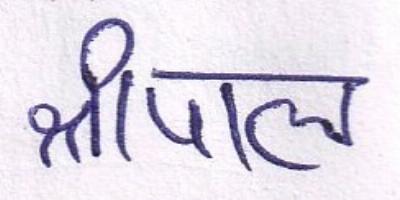 श्रीपाल